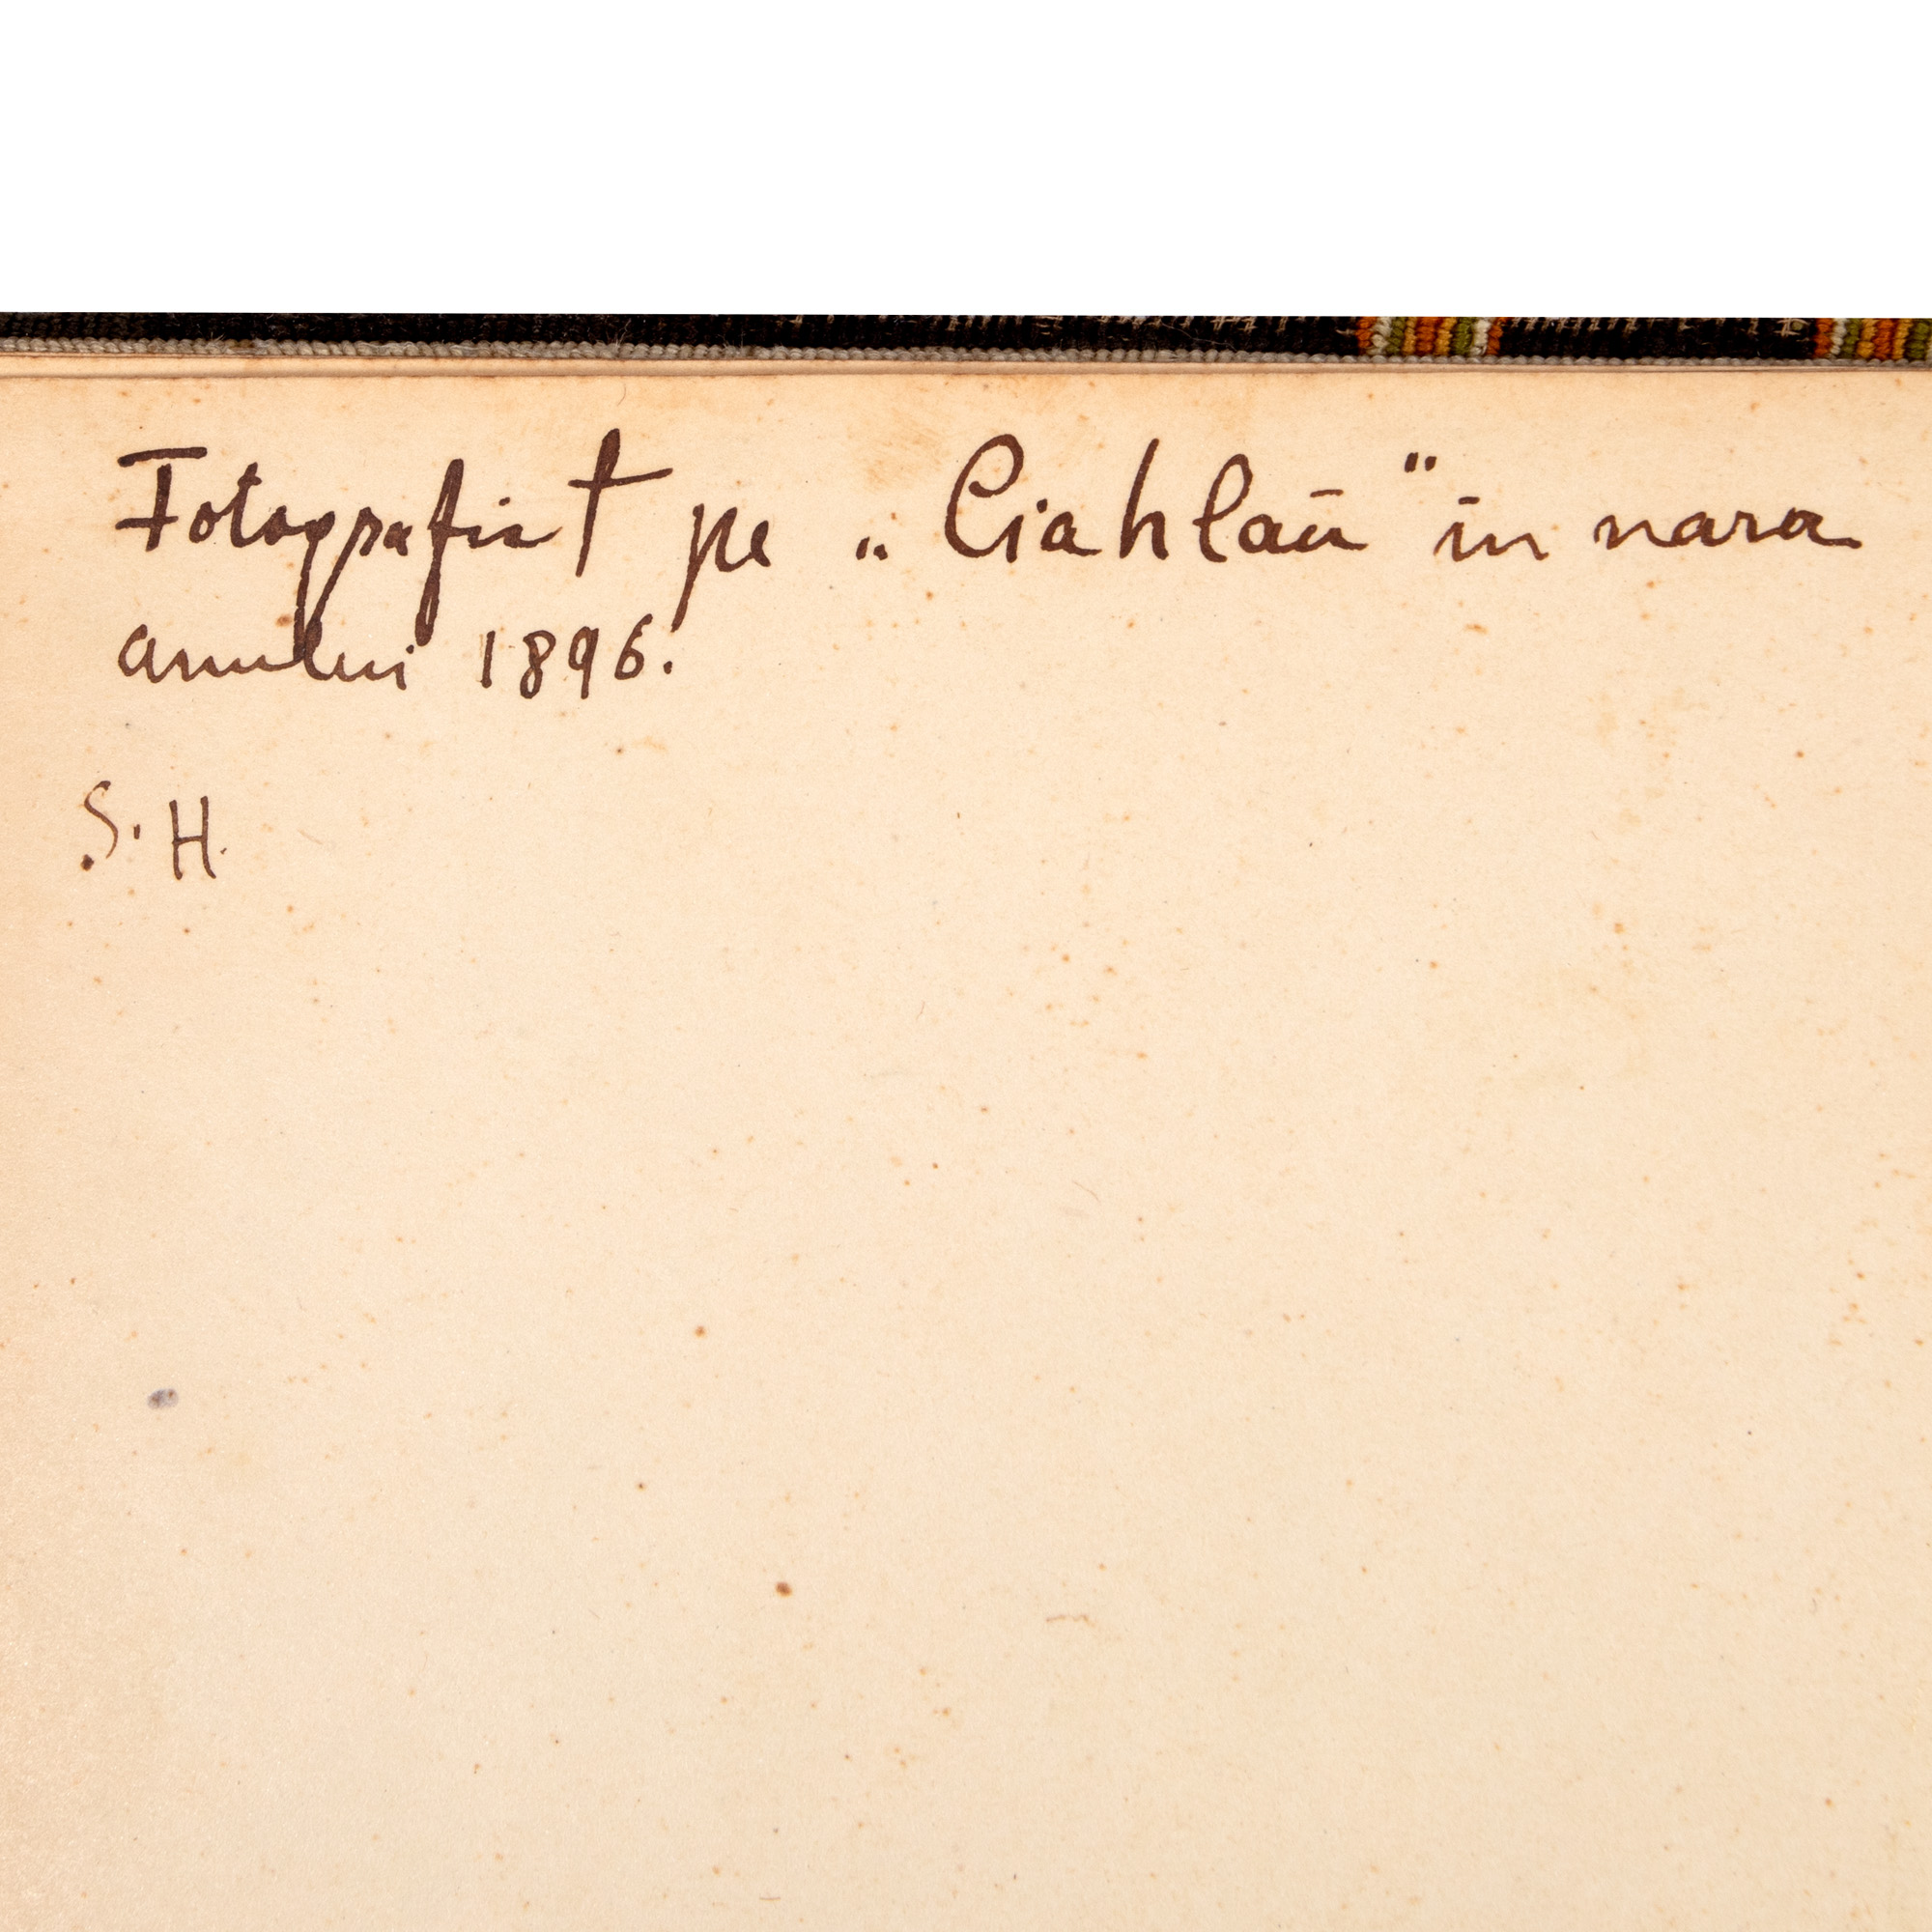 Fotografiat pe „Ciahlaŭ" în vara
anului 1896.
S. H.